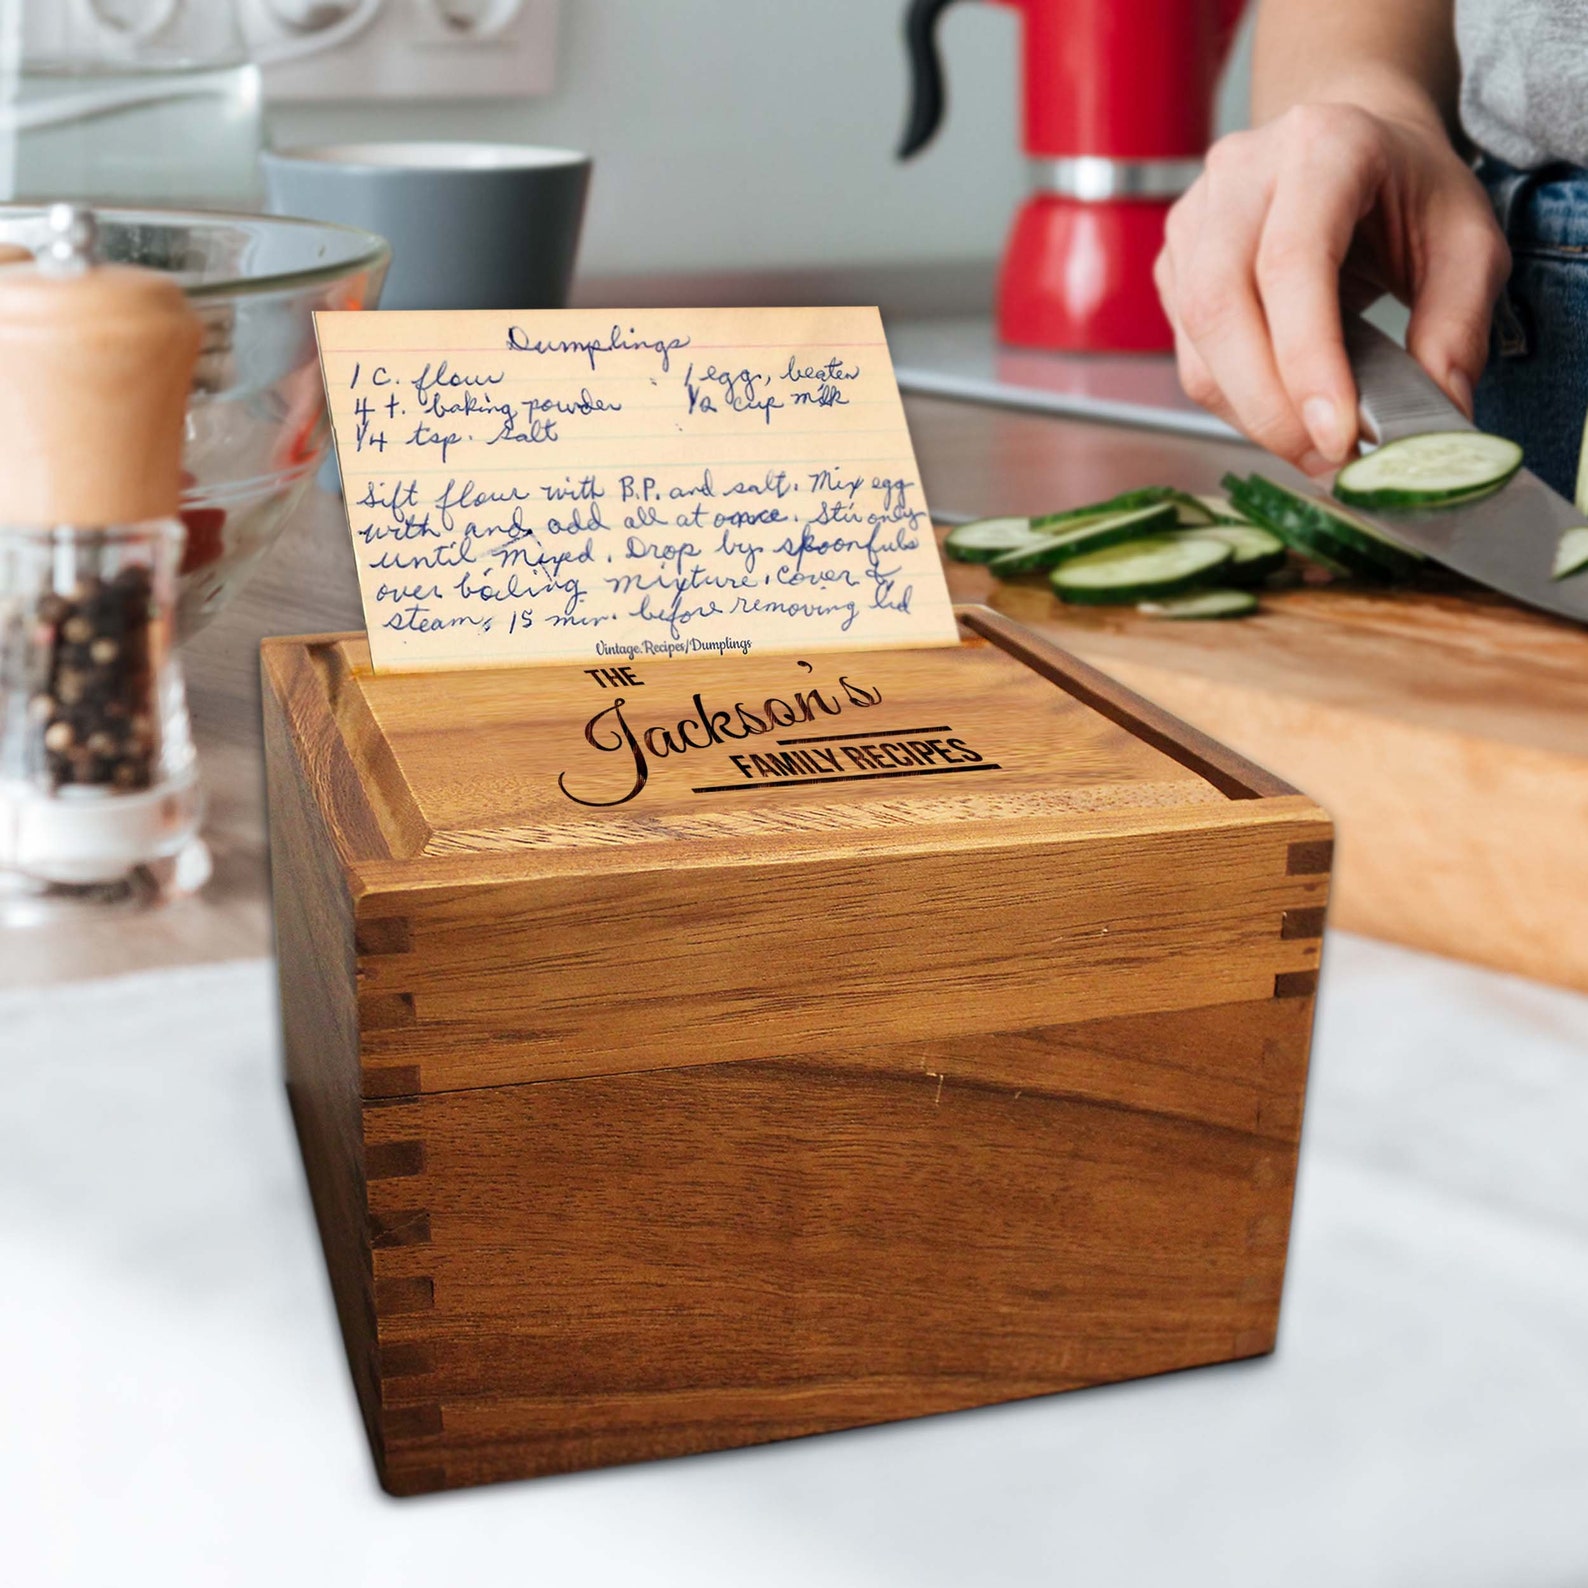 Dumplings
1 c. flour
1 egg, beaten
4 t. baking powder
1/2 cup milk
1/4 tsp. salt
Sift flour with B.P. and salt. Mix egg
with and add all at once. Stir only
until mixed. Drop by spoonfuls
over boiling mixture. Cover &
steam, 15 min. before removing lid
Vintage.Recipes/Dumplings
THE
Jackson's
FAMILY RECIPES